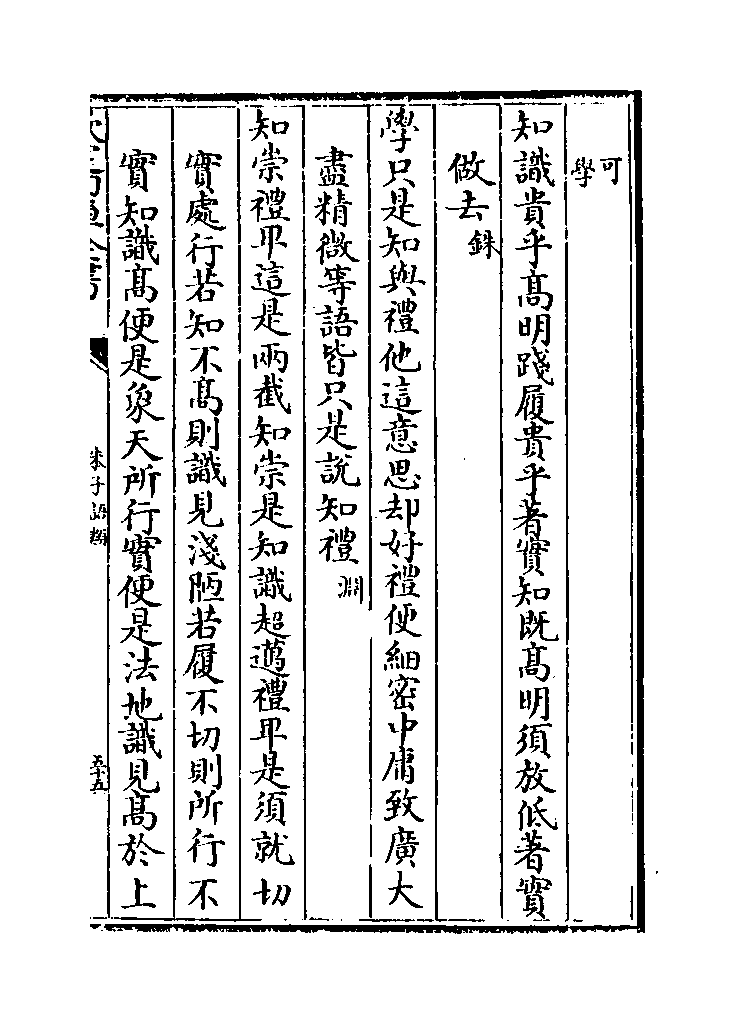 可學
知識貴乎髙明踐履貴乎著實知既髙明須放低著實
做去銖
學只是知與禮他這意思却好禮便細密中庸致廣大
盡精微等語皆只是說知禮淵
知崇禮卑這是兩截知崇是知識超邁禮卑是須就切
實處行若知不髙則識見淺陋若履不切則所行不
實知識髙便是象天所行實便是法地識見髙於上
欽定四庫全書
朱子語類
五十五